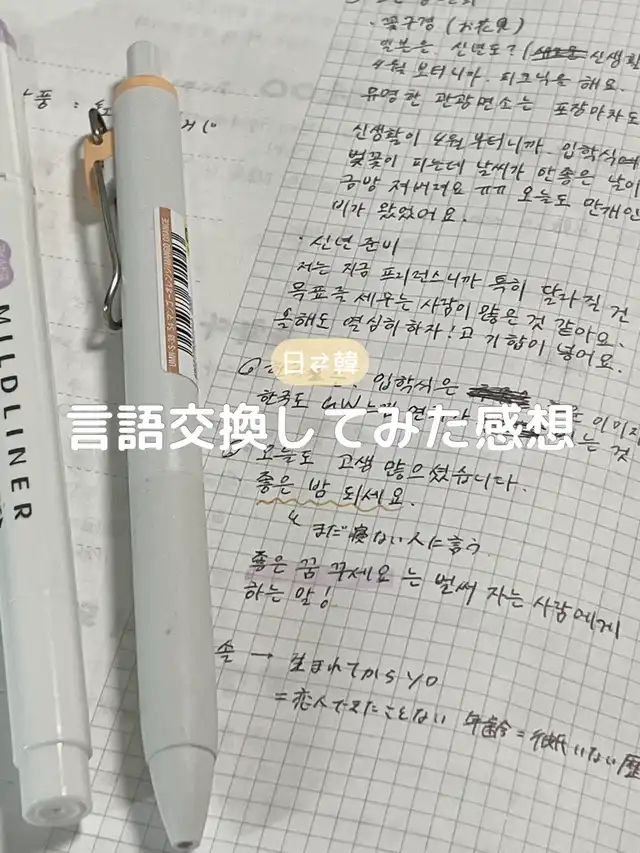 · 꽃구경 (お花見)
일본은 신년도? ( 신생활
4월 부터니까. 피크닉을 해요.
유명한 관광명소는 포장마차도
신생활이 4월 부터니까 입학식에
벚꽃이 피는데 날씨가 안좋은 날이
금방 져버려요 ㅠㅠ 오늘도 만개인
비가 왔었어요.
· 신년 준비
저는 지금 프리런스니까 특히 달라질 건
목표를 세우는 사람이 많은 것 같아요.
올해도 열심히 하자! 고 기합이 넣어요.
日⇄韓
입학식은 이미지
한국도 GW 는 것
言語交換してみた感想
오늘도 고생 많으셨습니다.
좋은 밤 되세요.
まだ寝ない人に言う
좋은 꿈 꾸세요 는 벌써 자는 사람에게
하는 말!
솔 → 生まれてから
= 恋人できたことない 年齢=彼氏いない歴
MILDLINER